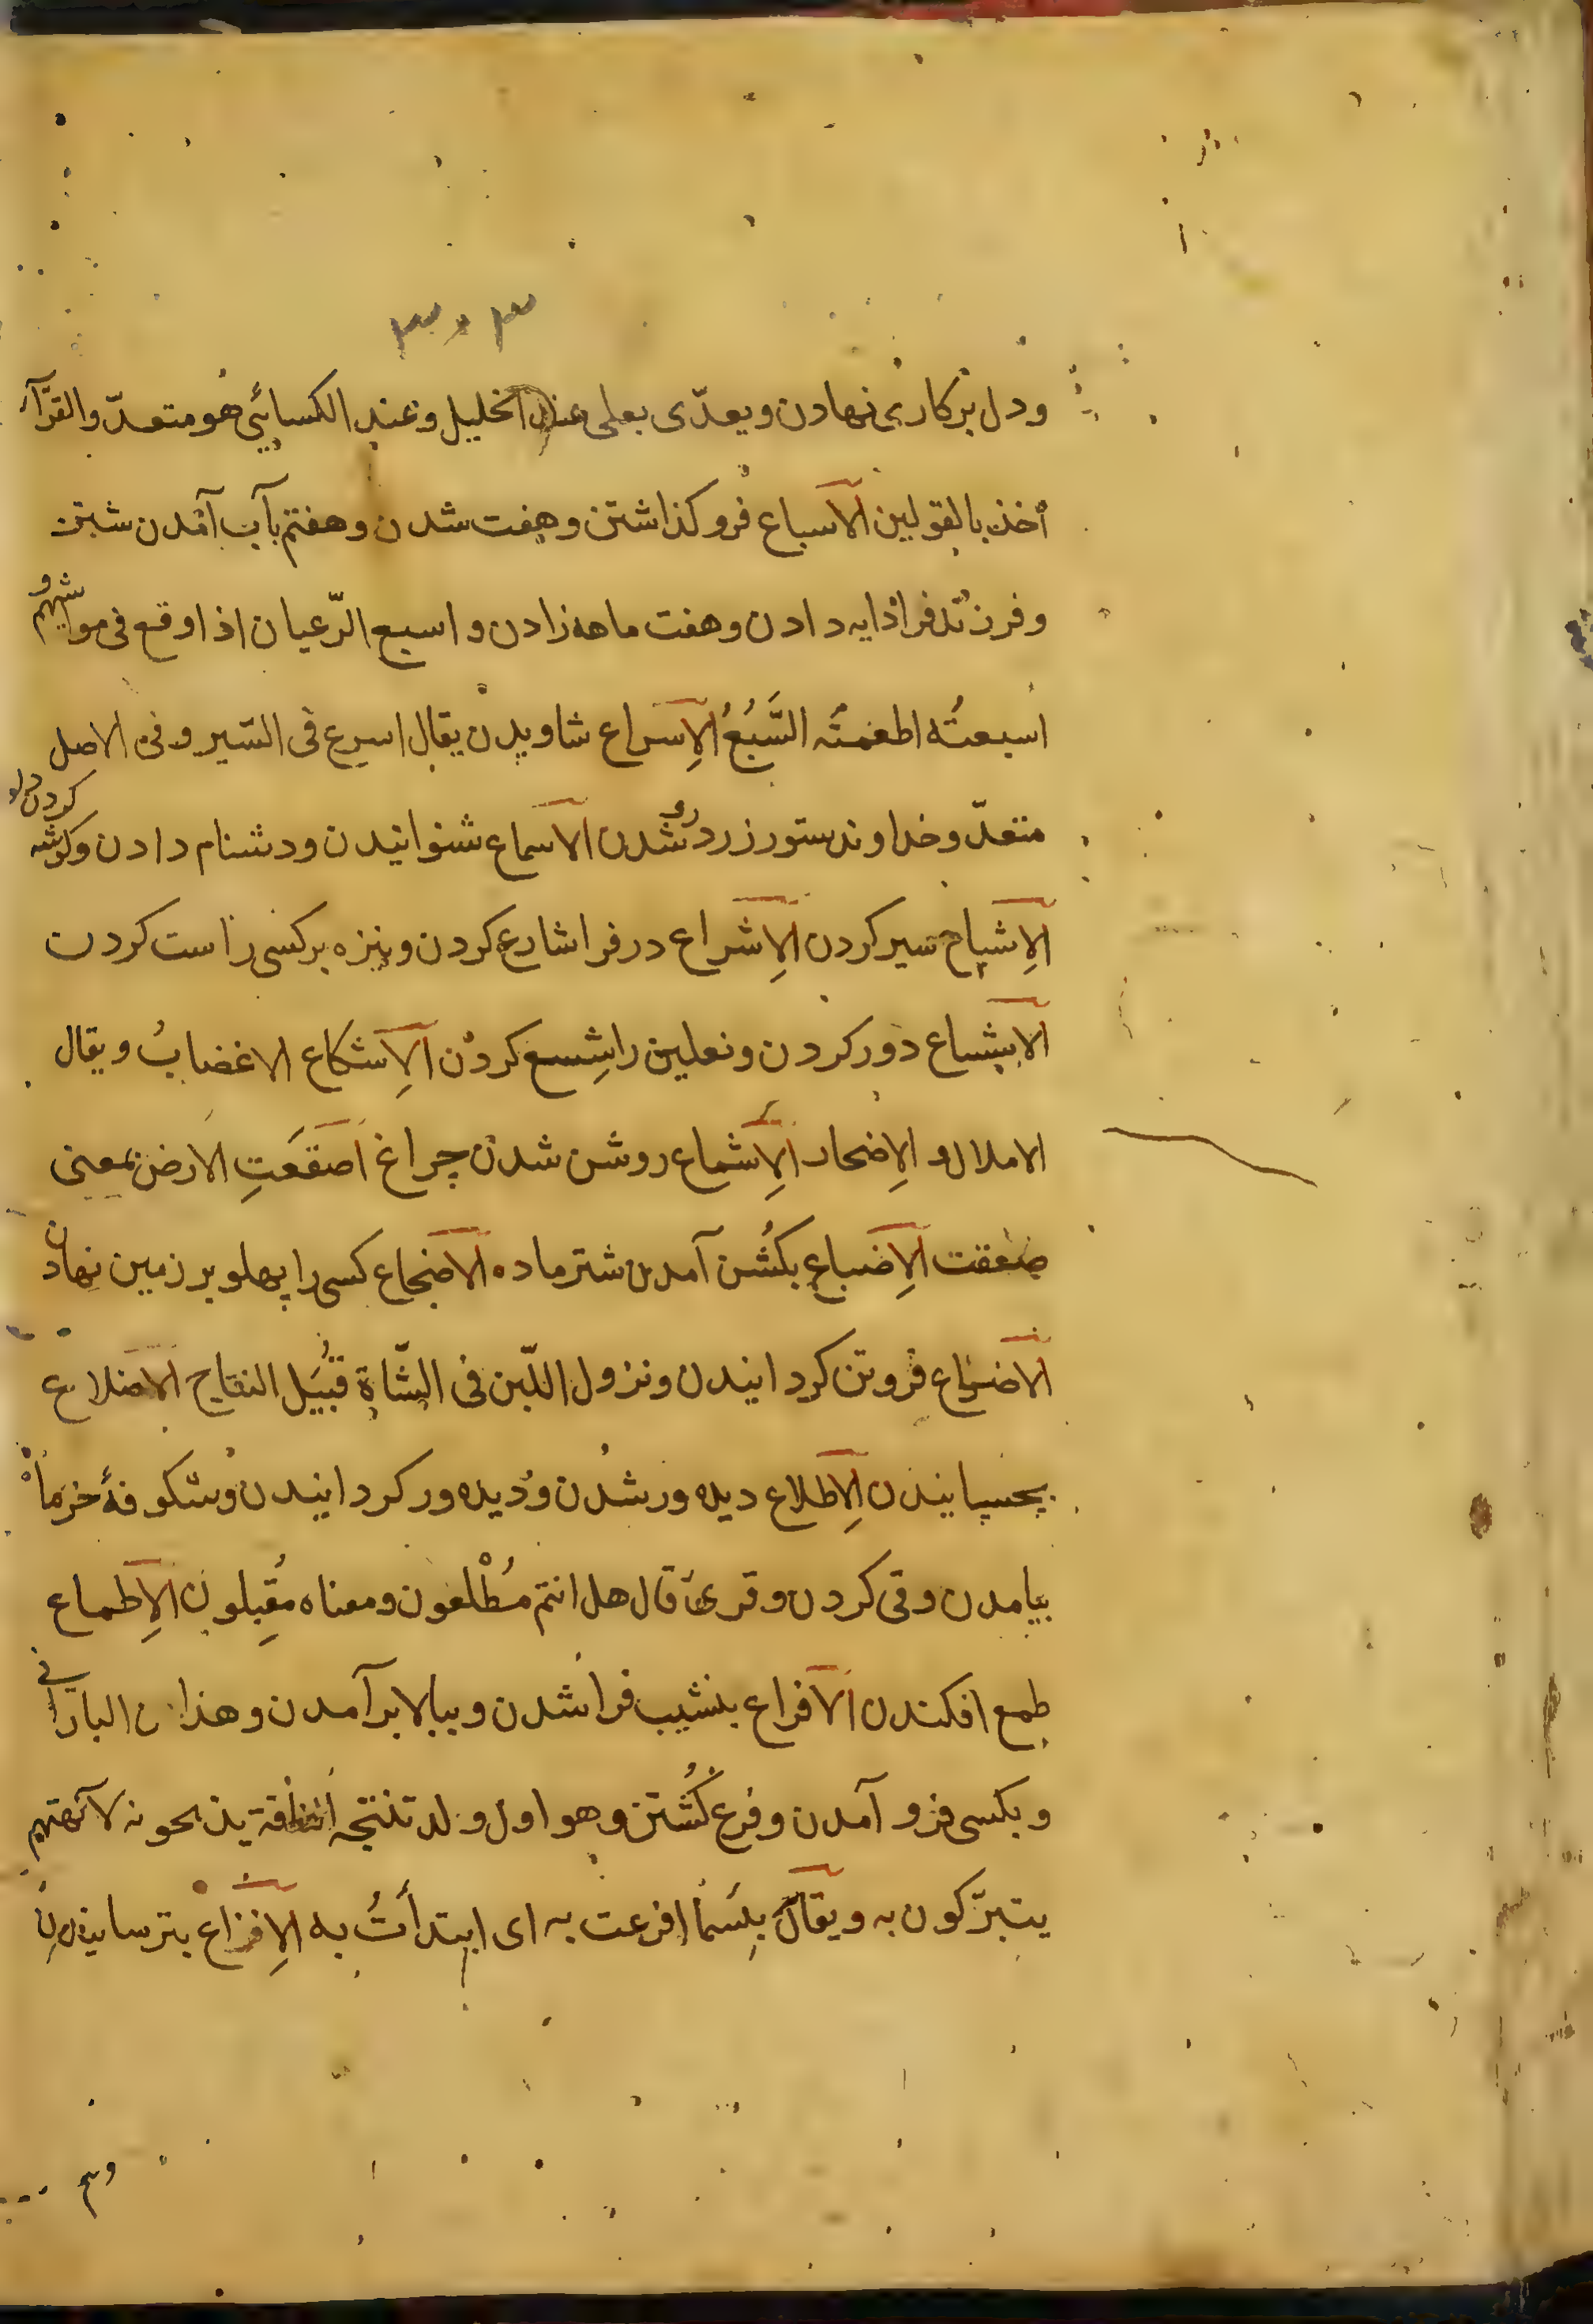 ۳۰۳
ودل برکاری نهادن ویعدّی بعلی عند الخلیل وعند الکسائیّ هو متعدّ والفرّآء
أخذ بالقولین الاسباع فروکذاشتن وهفت شدن وهفتم بآب آمدن شتر
وفرزند فرادایه دادن وهفت ماهه زادن واسبع الرّعیان اذا وقع فی مواشیهم
اسبعتُه اطعمتُه السَّبُعُ الاِسراع شتاویدن یقال اسرع فی السّیر وفی الاصل
متعدّ وخداوند ستور زودرو شدن الاسماع شنوانیدن ودشنام دادن وکوشه کردن دلو
الاِشباع سیر کردن الاِشراع در فرا شارع کردن ونیزه برکسی راست کردن
الاشساع دور کردن ونعلین را شِسع کردن الاِشکاع الاغضابُ ویقال
الاملال والاِضجار الاِشماع روشن شدن چراغ اصقَعَتِ الارض بمعنی
صعقت الاِضباع بکُشن آمدن شتر ماده الاضجاع کسی را پهلو بر زمین نهادن
الاضراع فروتن کردانیدن ونزول اللّبن فی الشّاة قُبَیل النتاج الاضلاع
بچسپانیدن الاِطلاع دیده ور شدن ودیده ور کردانیدن وشکوفهٔ خرما
بیامدن وقی کردن وقرئ قال هل انتم مُطْلعون ومعناه مُقبِلون الاِطماع
طمع افکندن الافراع بنشیب فرا شدن وببالا برآمدن وهذا من البارانی
وبکسی فرو آمدن وفرع کُشتن وهو اول ولد تنتجه الناقة یذبحونه لآلهتهم
یتبرّکون به ویقال بِئسَما افرعت به ای ابتدأتُ به الاِفزاع بترسانیدن